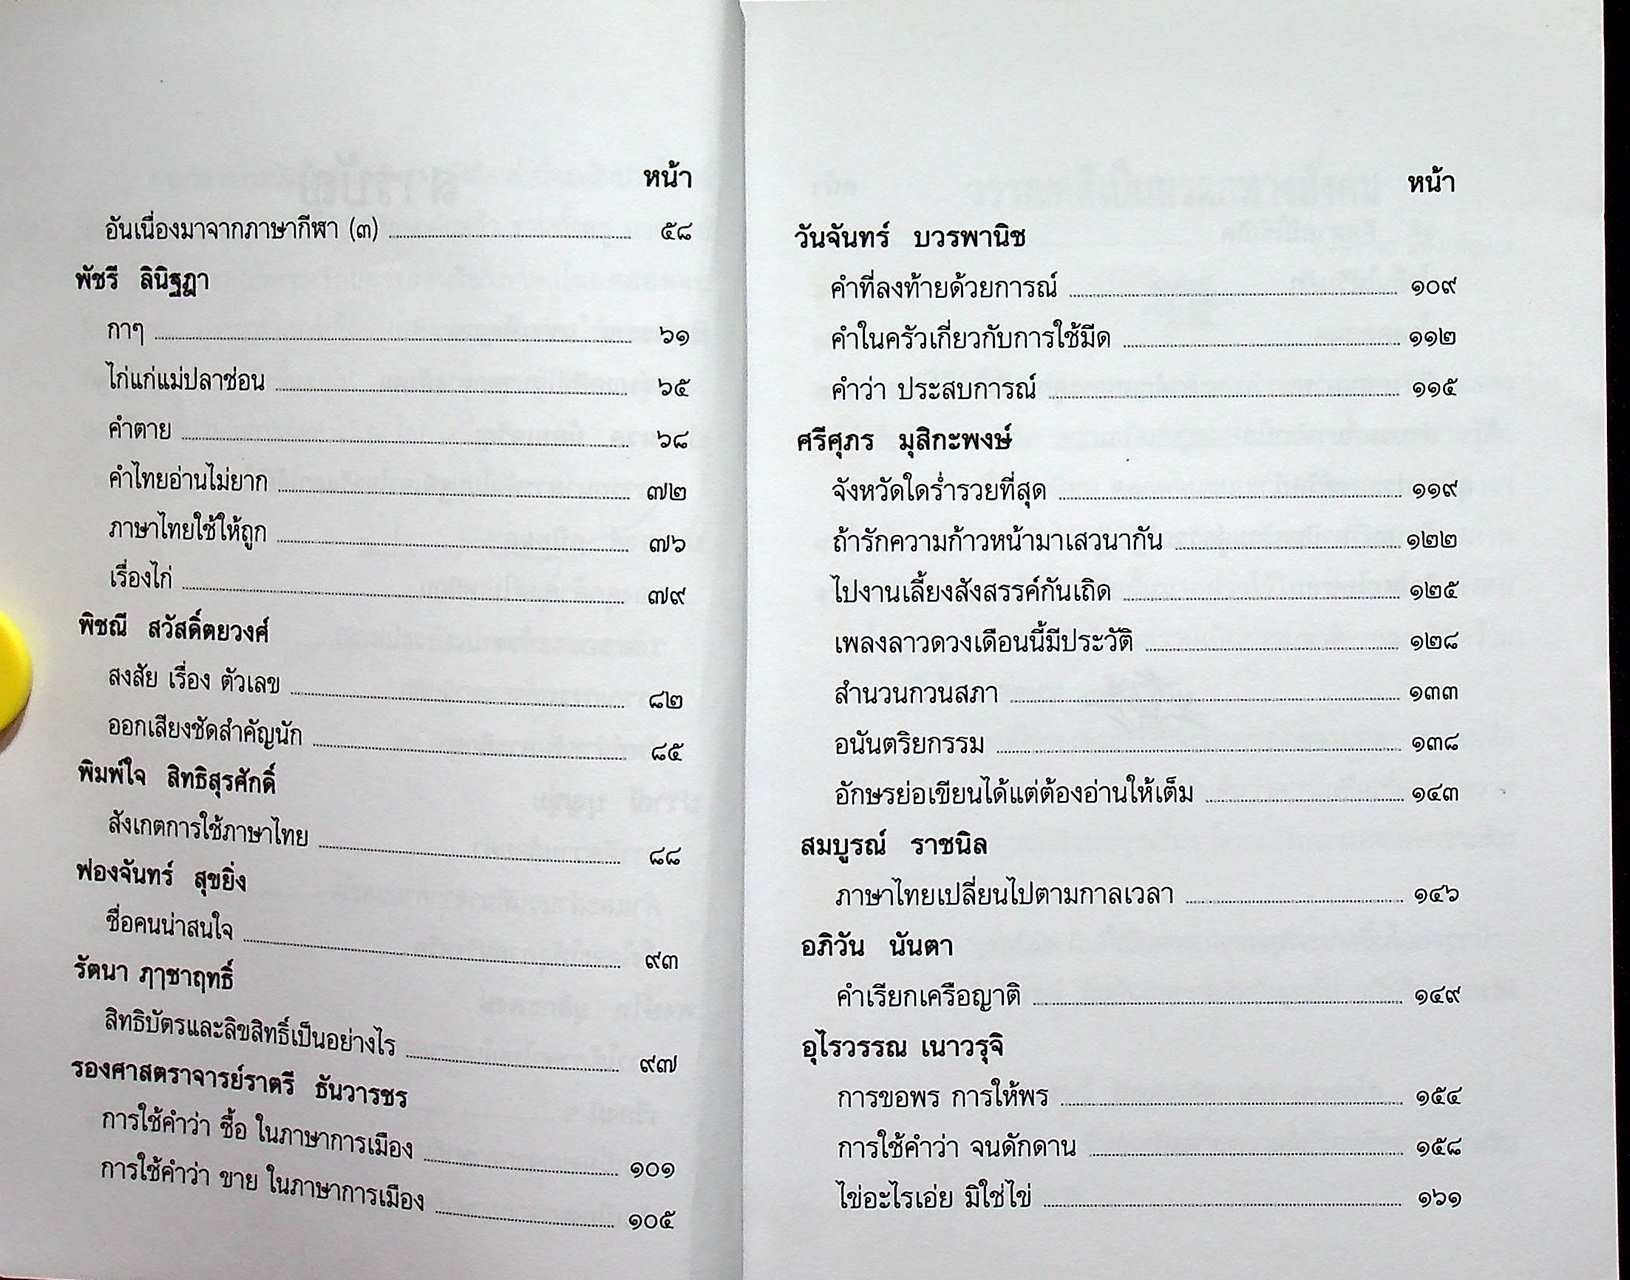 หน้า
อันเนื่องมาจากภาษากีฬา (๓) ๕๘
พัชรี ลินิฐฎา
กาๆ ๖๑
ไก่แก่แม่ปลาช่อน ๖๕
คำตาย ๖๘
คำไทยอ่านไม่ยาก ๗๒
ภาษาไทยใช้ให้ถูก ๗๖
เรื่องไก่ ๗๙
พิชณี สวัสดิ์ตยวงศ์
สงสัย เรื่อง ตัวเลข ๘๒
ออกเสียงชัดสำคัญนัก ๘๕
พิมพ์ใจ สิทธิสุรศักดิ์
สังเกตการใช้ภาษาไทย ๘๘
ฟองจันทร์ สุขยิ่ง
ชื่อคนน่าสนใจ ๙๓
รัตนา ฦๅชาฤทธิ์
สิทธิบัตรและลิขสิทธิ์เป็นอย่างไร ๙๗
รองศาสตราจารย์ราตรี ธันวารชร
การใช้คำว่า ซื้อ ในภาษาการเมือง ๑๐๑
การใช้คำว่า ขาย ในภาษาการเมือง ๑๐๕
หน้า
วันจันทร์ บวรพานิช
คำที่ลงท้ายด้วยการณ์ ๑๐๙
คำในครัวเกี่ยวกับการใช้มีด ๑๑๒
คำว่า ประสบการณ์ ๑๑๕
ศรีศุภร มุสิกะพงษ์
จังหวัดใดร่ำรวยที่สุด ๑๑๙
ถ้ารักความก้าวหน้ามาเสวนากัน ๑๒๒
ไปงานเลี้ยงสังสรรค์กันเถิด ๑๒๕
เพลงลาวดวงเดือนนี้มีประวัติ ๑๒๘
สำนวนกวนสภา ๑๓๓
อนันตริยกรรม ๑๓๘
อักษรย่อเขียนได้แต่ต้องอ่านให้เต็ม ๑๔๓
สมบูรณ์ ราชนิล
ภาษาไทยเปลี่ยนไปตามกาลเวลา ๑๔๖
อภิวัน นันตา
คำเรียกเครือญาติ ๑๔๙
อุไรวรรณ เนาวรุจิ
การขอพร การให้พร ๑๕๔
การใช้คำว่า จนดักดาน ๑๕๘
ไข่อะไรเอ่ย มิใช่ไข่ ๑๖๑